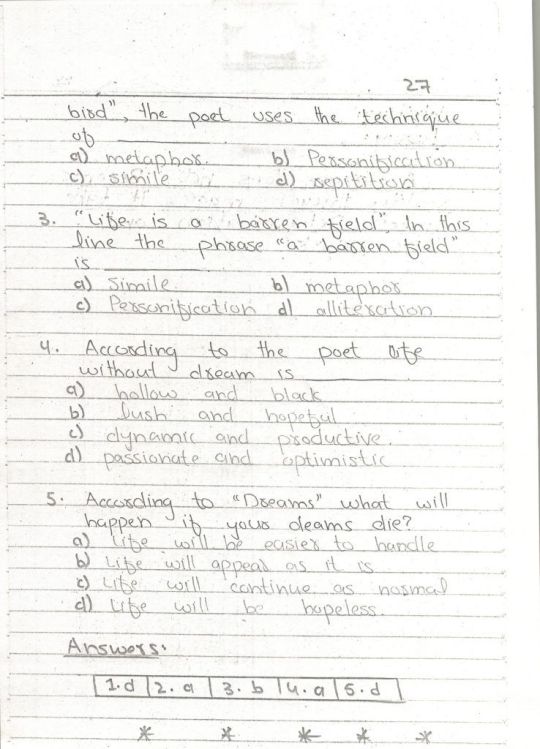 27
bird", the poet uses the technique
of ______
a) metaphor. b) Personification
c) simile d) repitition
3. "Life is a barren field". In this
line the phrase "a barren field"
is ______
a) Simile b) metaphor
c) Personification d) alliteration
4. According to the poet life
without dream is ______
a) hollow and black
b) lush and hopeful
c) dynamic and productive.
d) passionate and optimistic
5. According to "Dreams" what will
happen if your deams die?
a) Life will be easier to handle
b) Life will appear as it is
c) Life will continue as normal
d) Life will be hopeless.
Answers:
1. d 2. a 3. b 4. a 5. d
* * * * *